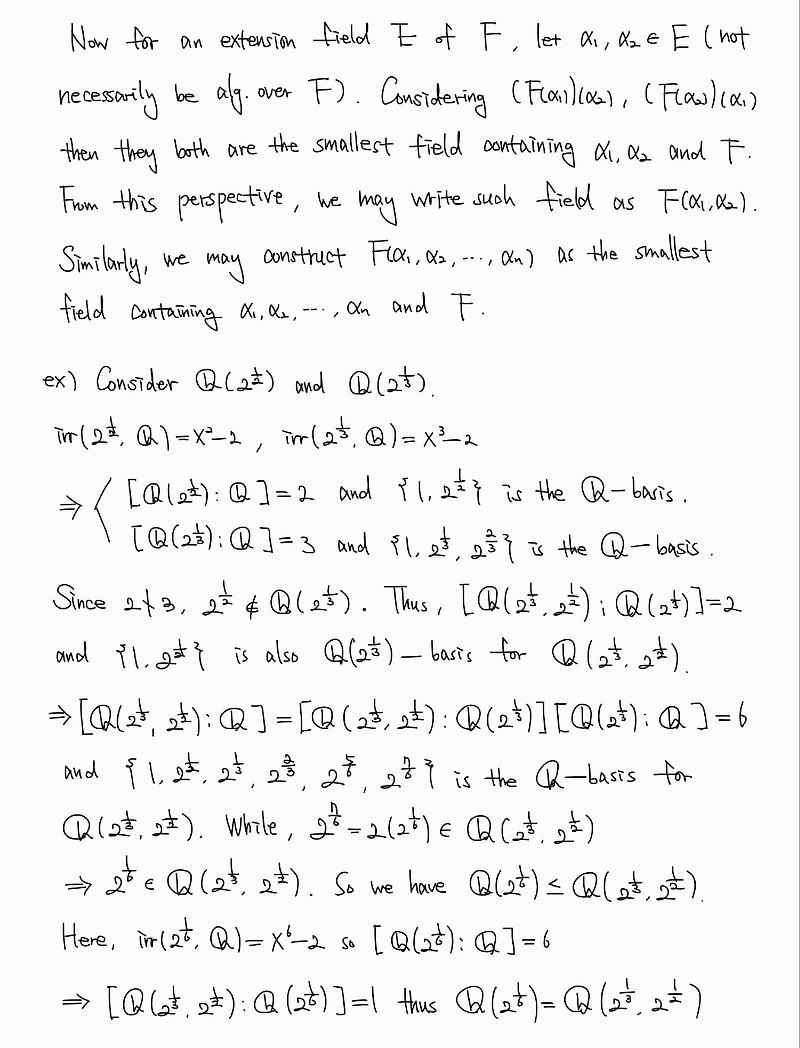 Now for an extension field E of F, let α₁, α₂ ∈ E (not
necessarily be alg. over F). Considering (F(α₁))(α₂), (F(α₂))(α₁)
then they both are the smallest field containing α₁, α₂ and F.
From this perspective, we may write such field as F(α₁, α₂).
Similarly, we may construct F(α₁, α₂, ⋯, αₙ) as the smallest
field containing α₁, α₂, ⋯, αₙ and F.
ex) Consider ℚ(2^{1/2}) and ℚ(2^{1/3}).
irr(2^{1/2}, ℚ) = x²-2, irr(2^{1/3}, ℚ) = x³-2
⇒ ⟨ [ℚ(2^{1/2}) : ℚ] = 2 and {1, 2^{1/2}} is the ℚ-basis.
[ℚ(2^{1/3}) : ℚ] = 3 and {1, 2^{1/3}, 2^{2/3}} is the ℚ-basis.
Since 2∤3, 2^{1/2} ∉ ℚ(2^{1/3}). Thus, [ℚ(2^{1/3}, 2^{1/2}) ; ℚ(2^{1/3})] = 2
and {1, 2^{1/2}} is also ℚ(2^{1/3})-basis for ℚ(2^{1/3}, 2^{1/2}).
⇒ [ℚ(2^{1/3}, 2^{1/2}) : ℚ] = [ℚ(2^{1/3}, 2^{1/2}) : ℚ(2^{1/3})][ℚ(2^{1/3}) : ℚ] = 6
and {1, 2^{1/2}, 2^{1/3}, 2^{2/3}, 2^{5/6}, 2^{7/6}} is the ℚ-basis for
ℚ(2^{1/3}, 2^{1/2}). While, 2^{7/6} = 2(2^{1/6}) ∈ ℚ(2^{1/3}, 2^{1/2})
⇒ 2^{1/6} ∈ ℚ(2^{1/3}, 2^{1/2}). So we have ℚ(2^{1/6}) ≤ ℚ(2^{1/3}, 2^{1/2}).
Here, irr(2^{1/6}, ℚ) = x⁶-2 so [ℚ(2^{1/6}) : ℚ] = 6
⇒ [ℚ(2^{1/3}, 2^{1/2}) : ℚ(2^{1/6})] = 1 thus ℚ(2^{1/6}) = ℚ(2^{1/3}, 2^{1/2})